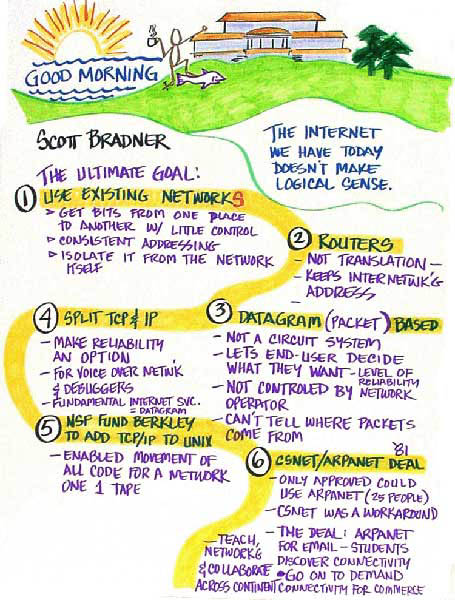 GOOD MORNING
SCOTT BRADNER
THE INTERNET
WE HAVE TODAY
DOESN'T MAKE
LOGICAL SENSE.
THE ULTIMATE GOAL:
1 USE EXISTING NETWORKS
> GET BITS FROM ONE PLACE
TO ANOTHER W/ LITTLE CONTROL
> CONSISTENT ADDRESSING
> ISOLATE IT FROM THE NETWORK
ITSELF
2 ROUTERS
- NOT TRANSLATION -
- KEEPS INTERNETWK'G
ADDRESS
-
3 DATAGRAM (PACKET) BASED
- NOT A CIRCUIT SYSTEM
- LETS END-USER DECIDE
WHAT THEY WANT - LEVEL OF
RELIABILITY
- NOT CONTROLED BY NETWORK
OPERATOR
- CAN'T TELL WHERE PACKETS
COME FROM
4 SPLIT TCP & IP
- MAKE RELIABILITY
AN OPTION
- FOR VOICE OVER NETWK
& DEBUGGERS
- FUNDAMENTAL INTERNET SVC.
= DATAGRAM
5 NSF FUND BERKLEY
TO ADD TCP/IP TO UNIX
- ENABLED MOVEMENT OF
ALL CODE FOR A NETWORK
ONE 1 TAPE
'81
6 CSNET/ARPANET DEAL
- ONLY APPROVED COULD
USE ARPANET (25 PEOPLE)
- CSNET WAS A WORKAROUND
- THE DEAL: ARPANET
FOR EMAIL - STUDENTS
DISCOVER CONNECTIVITY
• GO ON TO DEMAND
CONNECTIVITY FOR COMMERCE
- TEACH,
NETWORK'G
& COLLABORATE
ACROSS CONTINENT